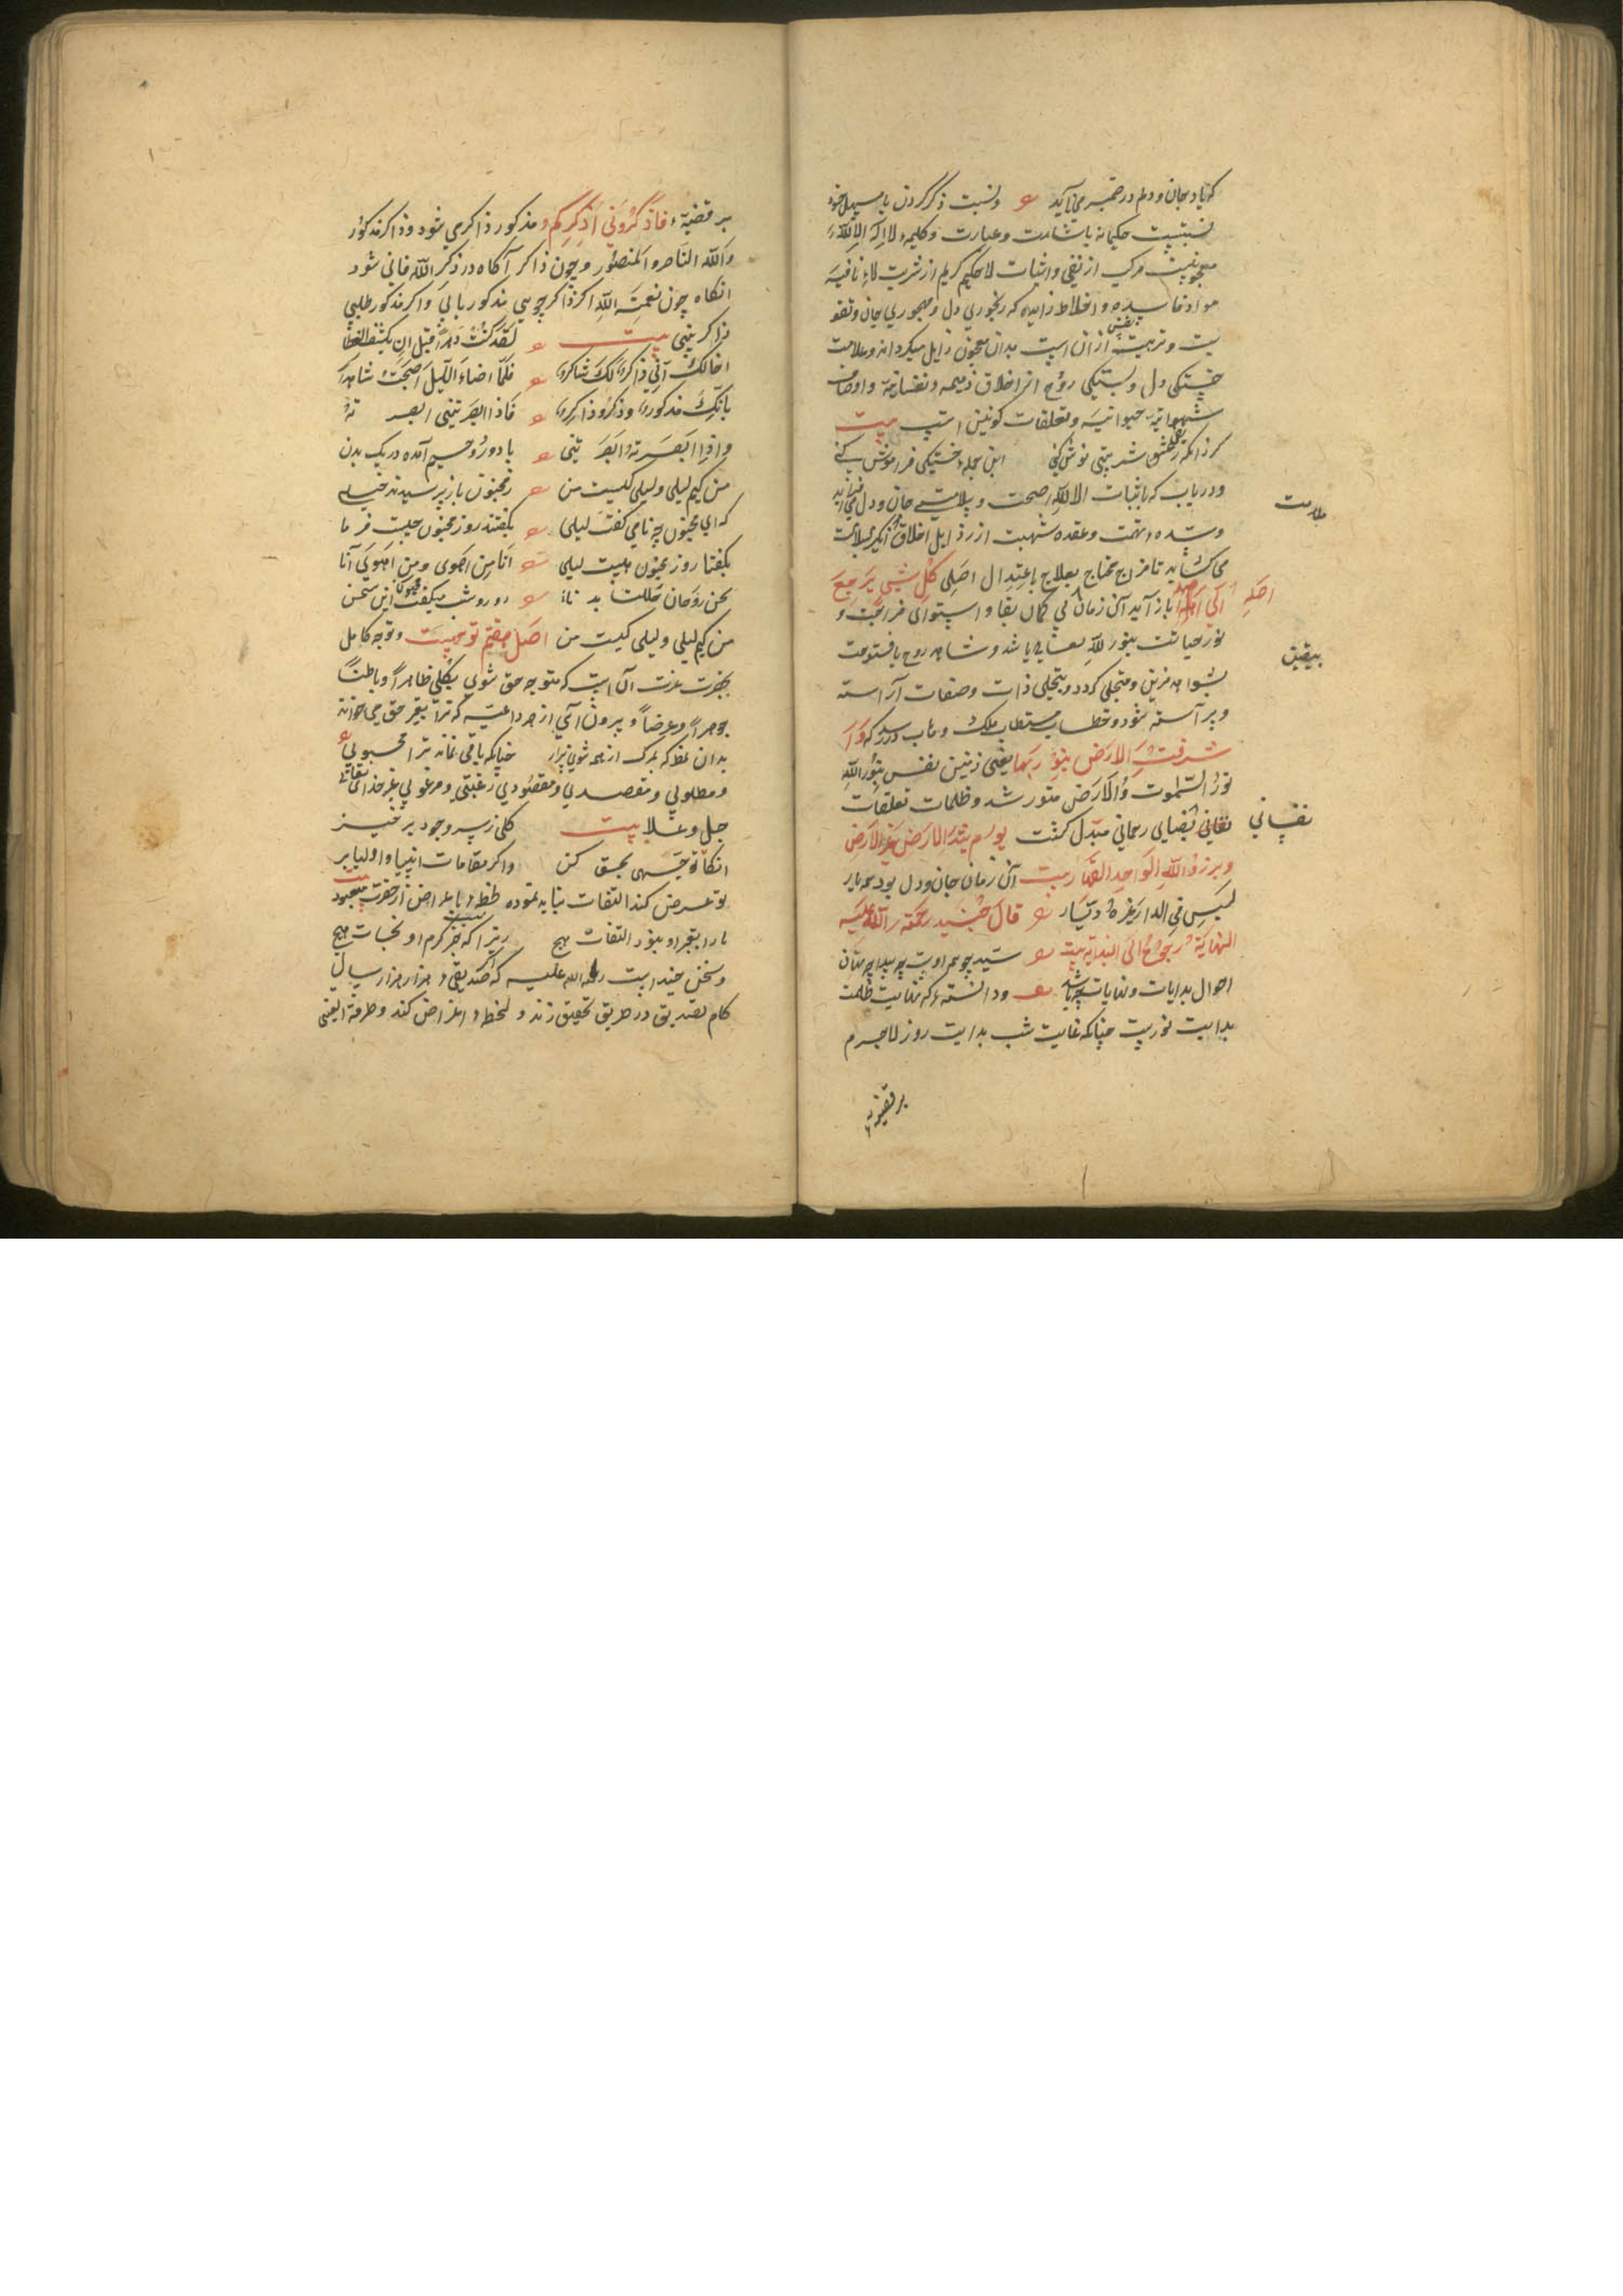 که یاد بجان و دلم در ضمیر می آید و نسبت ذکر کردن با سهیل خود
نسبتیست حکیمانه باشارت و عبارت و کلیمهٔ لا اله الا الله
معجونیست مرکب از نفی و اثبات لا حکیم کریم از شربت لاء نافیه
مواد فاسده و اخلاط زایده که رنجوری دل و مهجوری جان و تقو
یت و تربیت نفس ازان است بدان معجون زایل میکرداند و علامت
خستکی دل و بستکی روح از اخلاق ذمیمه و نفسانیه و اوصاف
شهوانیه حیوانیه و تعلقات کونین است بیت
کر ز انکه ز عشق شربتی نوش کنی این جمله خستکی فراموش کنی
و دریاب که باثبات الا الله صحت و سلامت جان و دل می فزاید
و سده تهمت و عقده شهبت از رذایل اخلاق
می کشاید تا مزاج محتاج بعلاج باعتدال اصلی کل شیی یرجع
الی اصله باز آید آن زمان بی کمال بقا و استوای فراغت و
نور حیاتت بنور الله تعالی باشد و شاهد روح بافتوحت
بشواهد مزین و متجلی کردد و بتجلی ذات و صفات آراسته
و بر آسته شود و خطاب مستطاب ملک وهاب در رسد که و ا
شرقت الارض بنور ربها یعنی زمین نفس بنور الله
نور السموات والارض منور شد و ظلمات تعلقات
نفسانی بفضای رحمانی مبدل کشت یوم تبدل الارض غیر الارض
وبرزوا لله الواحد القهار بیت آن زمان جان و دل بود همه یار
لیس فی الدار غیره دیار قال جنید رحمة الله علیه
النهایة رجوع الی البدایه بیت سید چو همه اوست چه پیدا چه نهان
احوال بدایات و نهایات چه باشد و دانسته که نهایت ظلمت
بدایت نوریست چنانکه غایت شب بدایت روز لاجرم
بر قضیهٔ
ملامت
اصله
بیقین
نفسانی
بر قضیهٔ فاذکرونی اذکرکم مذکور ذاکری شود و ذاکر مذکور
والله الناصر والمنصور و چون ذاکر آکاه در ذکر الله فانی شود
انکاه چون نعمة الله اکر ذاکر جویی مذکور یابی و اکر مذکور طلبی
ذاکر بینی بیت لقد کنت دهراً قبل ان یکشف الغطا
اخالک انی ذاکر لک شاکر فلما اضاء اللیل اصبحت شاهدا
بانک مذکور و ذکر و ذاکر فاذا ابصرتنی ابصرته
واذا ابصرته ابصرتنی یا دو روحیم آمده در یک بدن
من کیم لیلی و لیلی کیست من ز مجنون باز پرسیدند خیلی
که ای مجنون چه نامی کفت لیلی بکفتند روز مجنون چیست فرما
بکفتا روز مجنون هست لیلی انا من اهوی ومن اهوی انا
نحن روحان حللنا بدنا روز و شب میکفت مجنون این سخن
من کیم لیلی و لیلی کیست من اصل هفتم توجهست و توجه کامل
بحضرت عزت آن است که متوجه حق شوی بکلی ظاهراً و باطناً
جوهراً و عرضاً و بیرون آئی از هر داعیه که ترا بغیر حق می خواند
بدان نمط که بمرک از همه شوی بیزار چنانکه باقی نماند ترا محبوبی
و مطلوبی و مقصدی و مقصودی و رغبتی و مرغوبی بغیر خدای تعالی
جل و علا بیت کلی ز سر وجود بر خیز
انکاه توجهی بحق کن و اکر مقامات انبیا و اولیا بر
تو عرض کند التفات نباید نمود لحظهٔ باعراض از حضرت معبود بیت
ما را بغیر او نبود التفات هیچ زیرا که نیست جز کرم او نجات هیچ
و سخن جنید است رحمة الله علیه که اکر صدیقی هزار هزار سال
کام تصدیق در طریق تحقیق زند و لحظهٔ اعراض کند و طرفة العینی